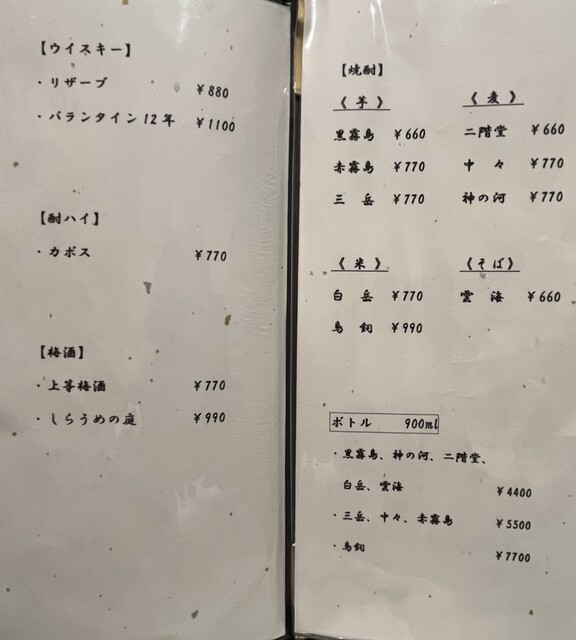 【ウイスキー】
・リザーブ ￥880
・バランタイン12年 ￥1100
【酎ハイ】
・カボス ￥770
【梅酒】
・上等梅酒 ￥770
・しらうめの庭 ￥990
【焼酎】
《 芋 》
黒霧島 ￥660
赤霧島 ￥770
三 岳 ￥770
《 麦 》
二階堂 ￥660
中 々 ￥770
神の河 ￥770
《 米 》
白 岳 ￥770
鳥 飼 ￥990
《そば》
雲 海 ￥660
ボトル 900ml
・黒霧島、神の河、二階堂、
白岳、雲海 ￥4400
・三岳、中々、赤霧島 ￥5500
・鳥飼 ￥7700